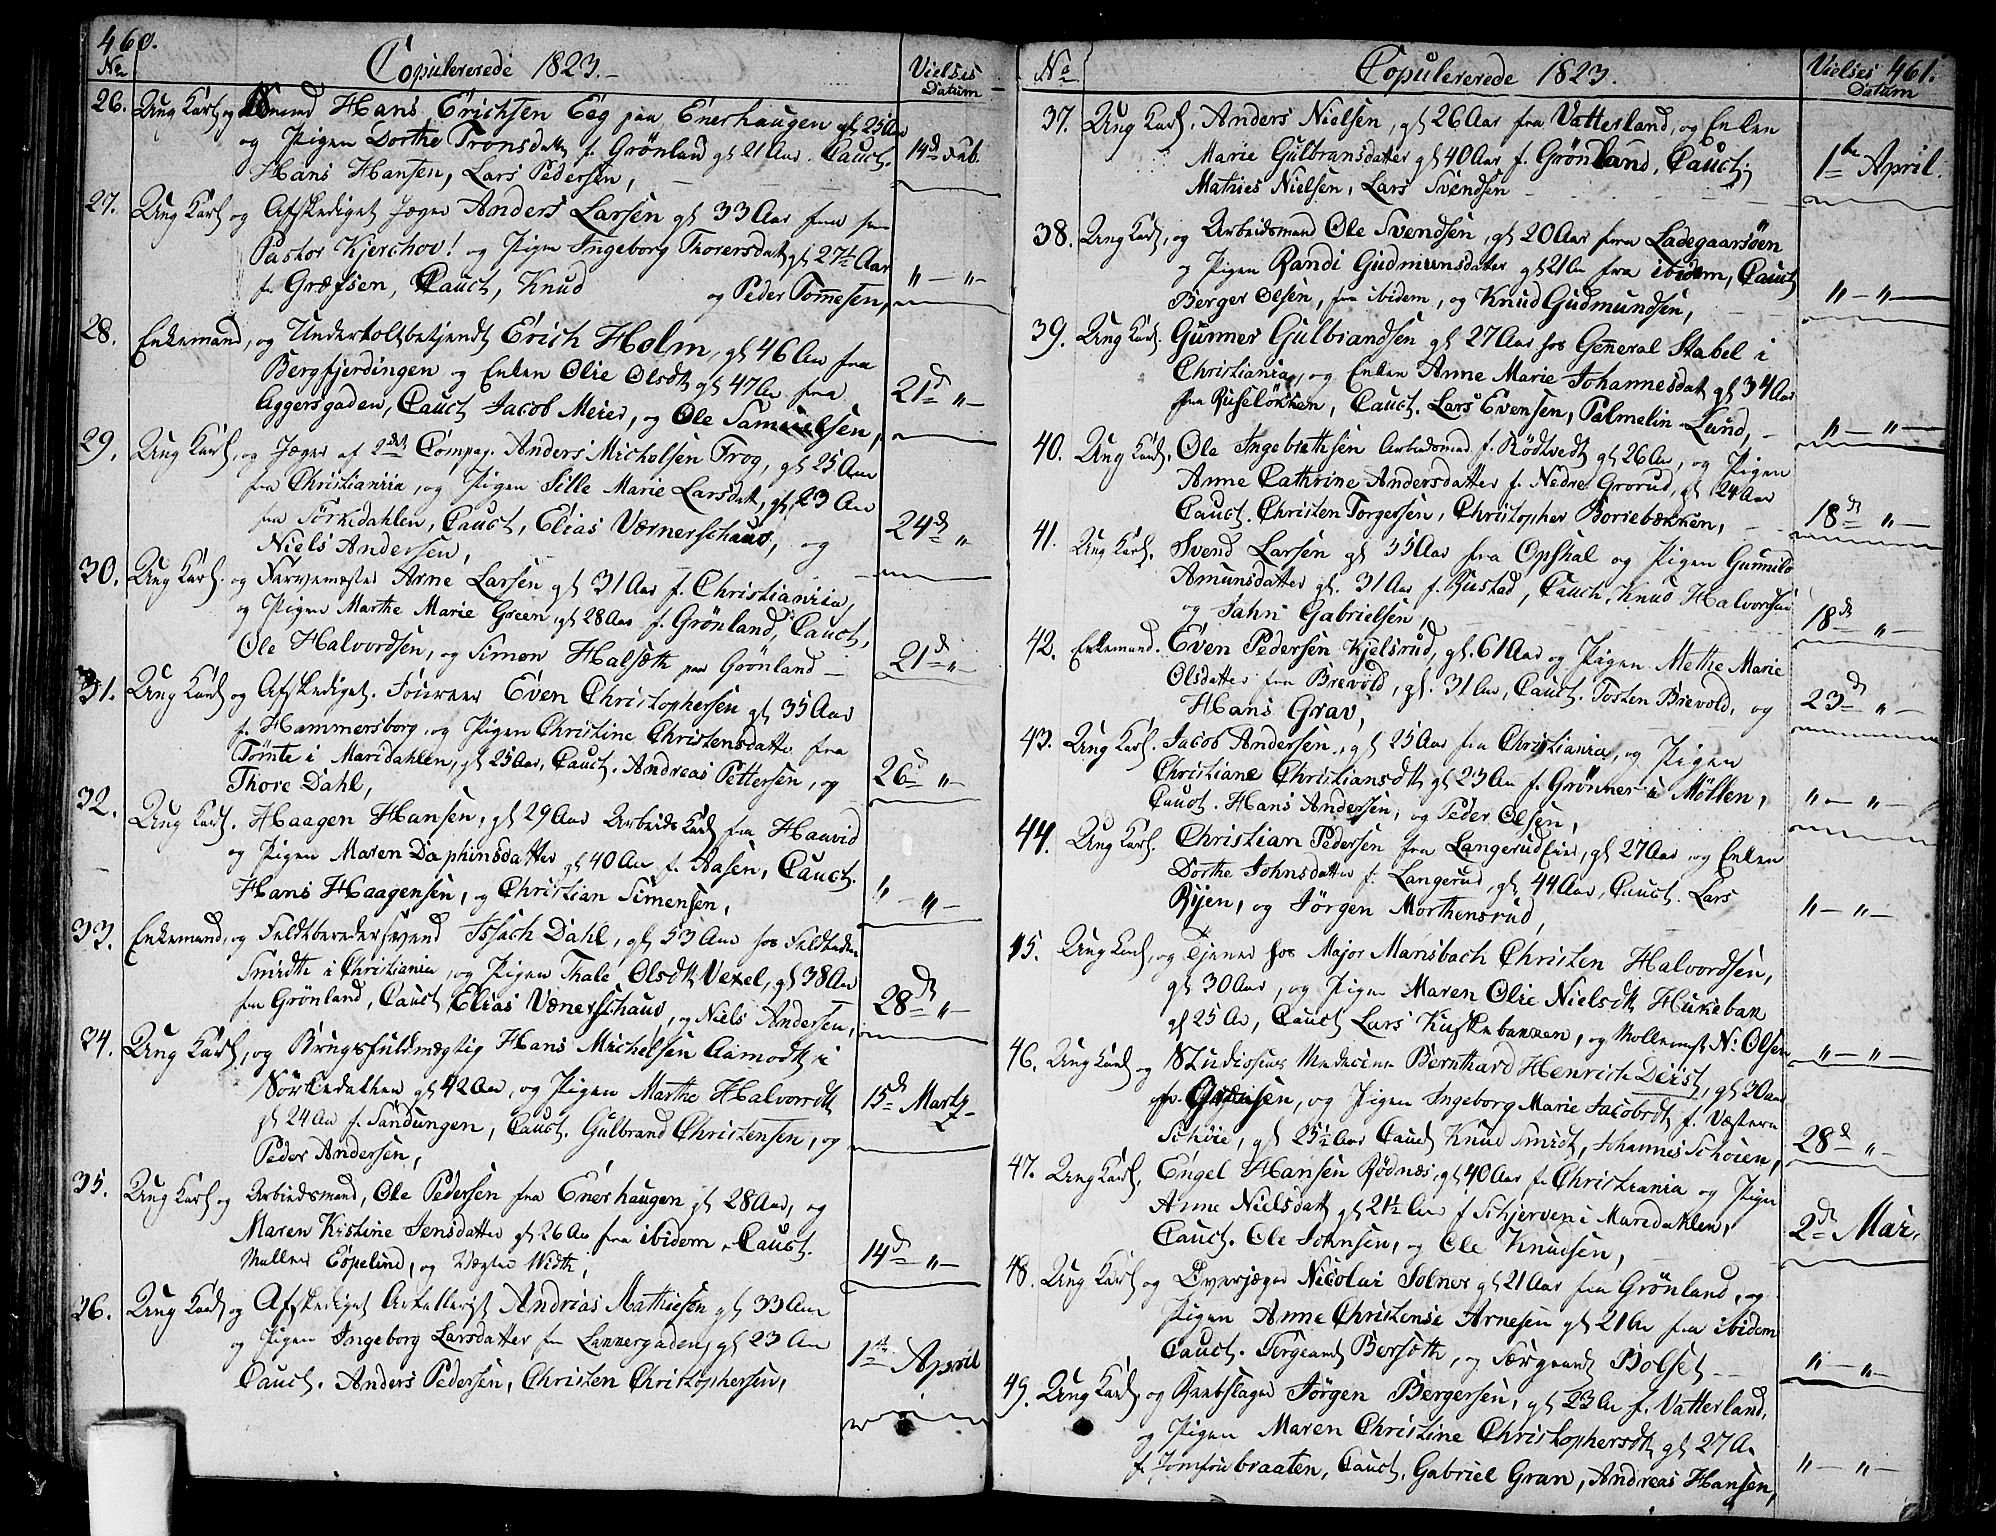 460.
No
Copulererede 1823.
Vielses
Datum
26. Ung Karl og Hans Erichsen Eeg paa Enerhaugen gl 25 Aar
og Pigen Dorthe Tronsdatt f. Grönland gl 21 Aar. Cauct. 14de Feb.
Hans Hansen, Lars Pedersen,
27. Ung Karl og Afskediget Jæger Anders Larsen gl 33 Aar fra
Pastor Kjerchov! og Pigen Ingeborg Thorersdat gl 27½ Aar
f. Græfsen, Cauct, Knud og Peder Tomesen, " — "
28. Enkemand, og Undertoldbetjendt Erich Holm, gl 46 Aar fra
Bergfjerdingen og Enken Olie Olsdt gl 47 Aar fra
Aggersgaden, Cauct Jacob Meier, og Ole Samuelsen, 21de "
29. Ung Karl, og Jæger af 2det Compag. Anders Michelsen Frog, gl 25 Aar
fra Christiania, og Pigen Sille Marie Larsdatt, gl 23 Aar
fra Sörkedahlen, Cauct, Elias Værnerschaud, og 24de "
Niels Andersen,
30. Ung Karl. og Farvemester Arne Larsen gl 31 Aar f. Christiania,
og Pigen Marthe Marie Green, gl 28 Aar f. Grönland, Cauct,
Ole Halvordsen, og Simon Halsæth paa Grönland 21de "
31. Ung Karl og Afskediget. Foureer Even Christophersen gl 35 Aar
f. Hammersborg, og Pigen Christine Christensdatter fra
Tömte i Maridahlen, gl 25 Aar, Cauct. Andreas Pettersen, og 26de "
Thore Dahl,
32. Ung Karl. Haagen Hansen, gl 29 Aar Arbeids Karl fra Haavid
og Pigen Maren Daphinsdatter gl 40 Aar f. Aasen, Cauct.
Hans Haagensen, og Christian Simensen, " — "
33. Enkemand, og Feldtberedersvend Issach Dahl, gl 53 Aar hos Feldtbeder
Smidth i Christiania, og Pigen Thale Olsdtt Vexel, gl 38 Aar
fra Grönland, Cauct Elias Værnerschaud, og Niels Andersen, 28de "
34. Ung Karl, og Brugsfuldmægtig Hans Michelsen Aamodtt i
Sörkedalhen gl 42 Aar, og Pigen Marthe Halvordt 15de Marty
gl 24 Aar f. Sandungen, Cauct. Gulbrand Christensen, og
Peder Andersen,
35. Ung Karl og Arbeidsmand, Ole Pedersen fra Enerhaugen gl 28 Aar, og
Maren Kistine Jensdatter gl 26 Aar fra ibidem, Cauct.
Mallner Espelund, og Vægter Width, 14de "
36. Ung Karl og Afskediget Artillerist Andrias Mathiesen gl 33 Aar
og Pigen Ingeborg Larsdatter fra Lammergaden, gl 23 Aar
Cauct. Anders Pedersen, Christen Christophersen, 1ste April
No
Copulererede 1823.
Vielses 461.
Datum
37. Ung Karl. Anders Nielsen, gl 26 Aar fra Vatterland, og Enken
Marie Gulbransdatter gl 40 Aar f. Grönland, Cauct; 1ste April.
Mathies Nielsen, Lars Svendsen
38. Ung Karl, og Arbeidsmand Ole Svendsen, gl 20 Aar fra Ladegaarsöen
og Pigen Randi Gudmunsdatter gl 21 Aar fra ibidem, Cauct
Berger Olsen, fra ibidem, og Knud Gudmundsen, " — "
39. Ung Karl. Gunner Gulbrandsen gl 27 Aar hos General Stabel i
Christiania, og Enken Anne Marie Johannesdat gl 34 Aar
fra Ruseløkken, Cauct. Lars Evensen, Palmelin Lund, " — "
40. Ung Karl. Ole Ingebrethsen Arbeidsmand f. Rödtvedt gl 26 Aar, og Pigen
Anne Cathrine Andersdatter f. Nedre Grorud, gl 24 Aar
Cauct. Christen Torgersen, Christopher Boriebækken, 18de "
41. Ung Karl. Svend Larsen gl 35 Aar fra Opshal og Pigen Gunnild
Amunsdatter gl. 31 Aar f. Rustad, Cauct, Knud Halvordsen
og Jahn Gabrielsen, 18de "
42. Enkemand. Even Pedersen Kjelsrud, gl. 61 Aar og Pigen Methe Marie
Olsdatter fra Brevold, gl. 31 Aar, Cauct. Tosten Brevold, og 23de "
Hans Grav,
43. Ung Karl. Jacob Andersen, gl 25 Aar fra Christiania, og Pigen
Christiane Christiansdtt gl 23 Aar f. Grönner Möllen,
Cauct. Hans Andersen, og Peder Olsen, " — "
44. Ung Karl. Christian Pedersen fra Langerudeie, gl 27 Aar og Enken
Dorthe Johnsdatter f. Langerud, gl 44 Aar, Cauct. Lars
Ryen, og Jörgen Morthensrud, " — "
45. Ung Karl, og Tjener hos Major Mansbach Christen Halvordsen,
gl 30 Aar, og Pigen Maren Olie Nielsdt Hukeback
gl 25 Aar, Cauct Lars Kustebakken, og Mollemst N: Olsen " — "
46. Ung Karl og Studiosus Medicine Bernthard Henrich Deist, gl 30 Aar
og Pigen Ingeborg Marie Jacobsdt f. Væstern
Schöie, gl 25½ Aar Cauct Knud Smidt, Johannes Schöien, 28de "
47. Ung Karl. Engel Hansen Rødnæs, gl 40 Aar f. Christiania og Pigen
Anne Nielsdatt gl 21½ Aar f Skjerven i Maredahlen, 2de Mai
Cauct. Ole Johnsen, og Ole Knudsen,
48. Ung Karl og Overjæger Nicolai Solner gl 21 Aar fra Grönland, og
Pigen Anne Christensi Arnesen gl 21 Aar fra ibidem
Cauct. Sergeant Bersöth, og Særgeant Bolset " — "
49. Ung Karl. og Raabslager Jörgen Bergersen, gl 23 Aar f. Vatterland,
og Pigen Maren Christine Christophersdt gl 27 A.
f. Jomfrubraaten, Cauct. Gabriel Gran, Andreas Hansen, " — "